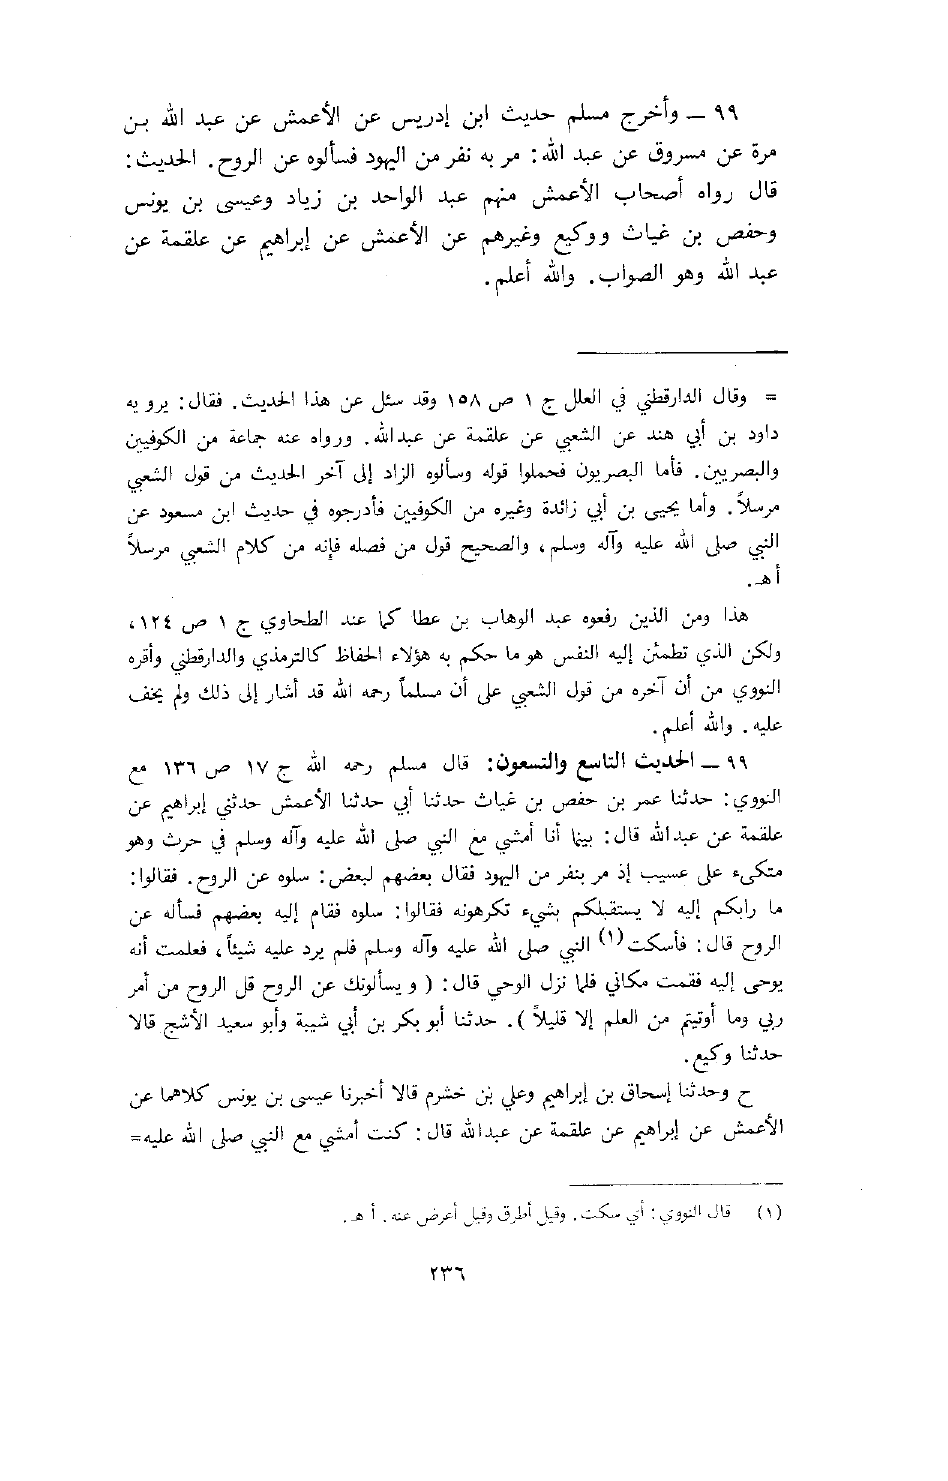 ٩٩ ــ وأخرج مسلم حديث ابن إدريس عن الأعمش عن عبد الله بن
مرة عن مسروق عن عبد الله: مر به نفر من اليهود فسألوه عن الروح. الحديث:
قال رواه أصحاب الأعمش منهم عبد الواحد بن زياد وعيسى بن يونس
وحفص بن غياث ووكيع وغيرهم عن الأعمش عن إبراهيم عن علقمة عن
عبد الله وهو الصواب. والله أعلم.
= وقال الدارقطني في العلل ج ١ ص ١٥٨ وقد سئل عن هذا الحديث. فقال: يرويه
داود بن أبي هند عن الشعبي عن علقمة عن عبدالله. ورواه عنه جماعة من الكوفيين
والبصريين. فأما البصريون فحملوا قوله وسألوه الزاد إلى آخر الحديث من قول الشعبي
مرسلاً. وأما يحيى بن أبي زائدة وغيره من الكوفيين فأدرجوه في حديث ابن مسعود عن
النبي صلى الله عليه وآله وسلم، والصحيح قول من فصله فإنه من كلام الشعبي مرسلاً
أ هـ.
هذا ومن الذين رفعوه عبد الوهاب بن عطا كما عند الطحاوي ج ١ ص ١٢٤،
ولكن الذي تطمئن إليه النفس هو ما حكم به هؤلاء الحفاظ كالترمذي والدارقطني وأقره
النووي من أن آخره من قول الشعبي على أن مسلماً رحمه الله قد أشار إلى ذلك ولم يخف
عليه. والله أعلم.
٩٩ ــ الحديث التاسع والتسعون: قال مسلم رحمه الله ج ١٧ ص ١٣٦ مع
النووي: حدثنا عمر بن حفص بن غياث حدثنا أبي حدثنا الأعمش حدثني إبراهيم عن
علقمة عن عبدالله قال: بينما أنا أمشي مع النبي صلى الله عليه وآله وسلم في حرث وهو
متكىء على عسيب إذ مر بنفر من اليهود فقال بعضهم لبعض: سلوه عن الروح. فقالوا:
ما رابكم إليه لا يستقبلكم بشيء تكرهونه فقالوا: سلوه فقام إليه بعضهم فسأله عن
الروح قال: فأسكت(١) النبي صلى الله عليه وآله وسلم فلم يرد عليه شيئاً، فعلمت أنه
يوحى إليه فقمت مكاني فلما نزل الوحي قال: (ويسألونك عن الروح قل الروح من أمر
ربي وما أوتيتم من العلم إلا قليلاً). حدثنا أبو بكر بن أبي شيبة وأبو سعيد الأشج قالا
حدثنا وكيع.
ح وحدثنا إسحاق بن إبراهيم وعلي بن خشرم قالا أخبرنا عيسى بن يونس كلاهما عن
الأعمش عن إبراهيم عن علقمة عن عبدالله قال: كنت أمشي مع النبي صلى الله عليه=
(١) قال النووي: أي سكت. وقيل أطرق وقيل أعرض عنه. أ هـ.
٢٣٦